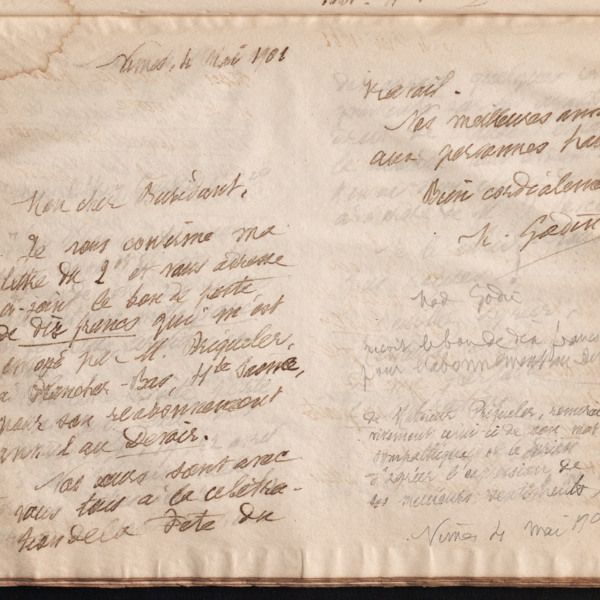 Nîmes, 4 Mai 1901
Mon cher Buridant,
Je vous confirme ma
lettre du 2 et vous adresse
ci-joint le bon de poste
de dix francs qui m'est
envoyé par M. Priqueler,
à Plancher-Bas, Hte Saône,
pour son réabonnement
annuel au Devoir.
Nos cœurs sont avec
vous tous à la célébra-
tion de la Fête du
travail.
Nos meilleures ami
aux personnes
Bien cordialeme
Godin
Mad Godin
reçoit le bon de dix francs
pour l'abonnement au
de Priqueler, remercie
vivement celui-ci de son mot
sympathique et le prie
d'agréer l'expression de
ses meilleurs sentiments
Nîmes 4 mai 190